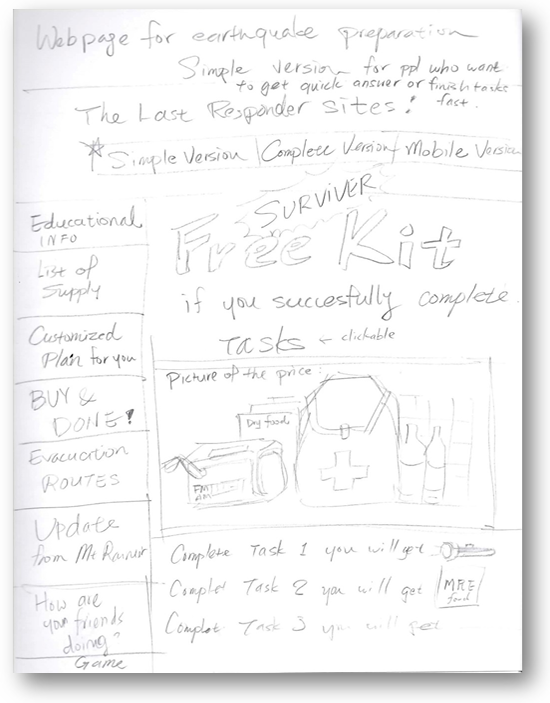 Webpage for earthquake preparation
Simple version for ppl who want
to get quick answer or finish tasks
fast.
The Last Responder sites!
Simple Version | Complete Version | Mobile Version
Educational
INFO
List of
Supply
Customized
Plan for you
BUY &
DONE!
Evacuation
ROUTES
Update
from Mt Rainier
How are
your friends
doing?
Game
SURVIVER
Free Kit
if you succesfully complete
TASKS ← clickable
Picture of the price
Dry food
FM
AM
Complete Task 1 you will get
Complet Task 2 you will get MRE
food
Complet Task 3 you will get ...